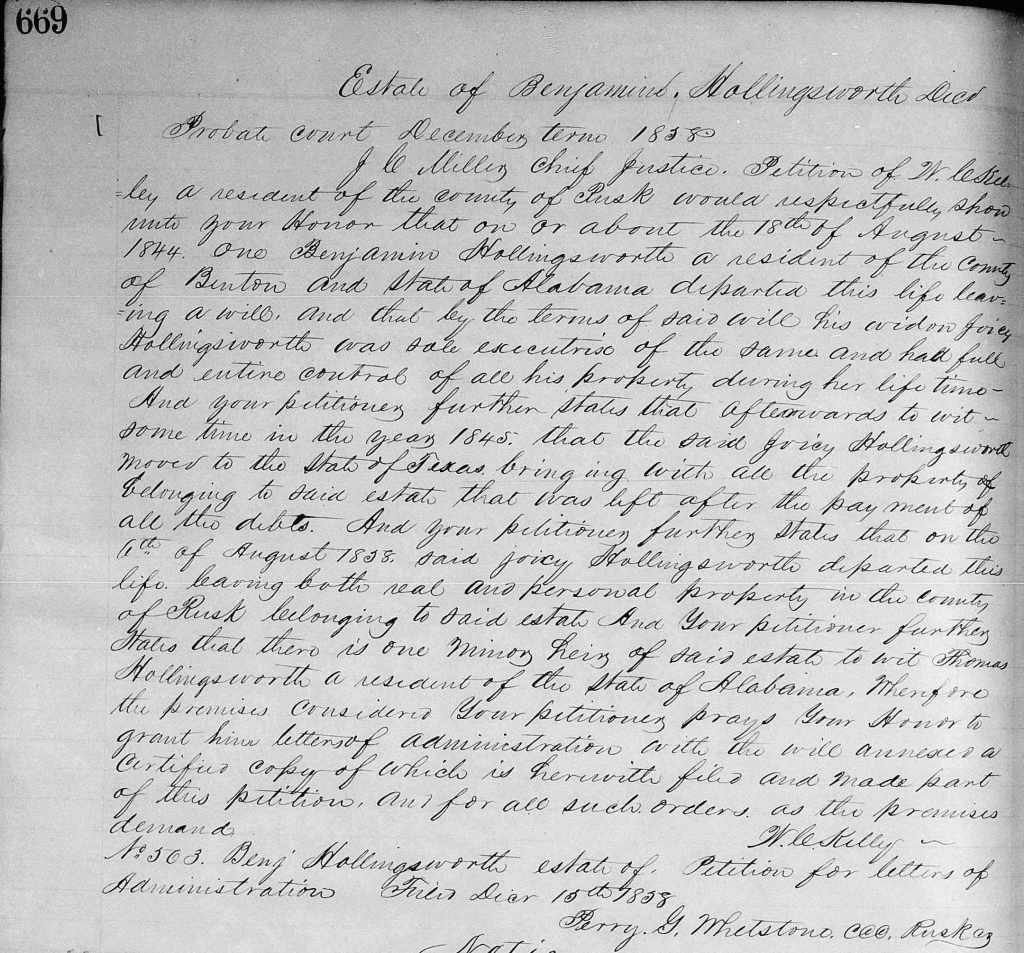 669
Estate of Benjamin Hollingsworth Decd
Probate court December term 1858
J C Miller Chief Justice. Petition of W. C Kel-
=ley a resident of the county of Rusk would respectfully show
unto your Honor that on or about the 18th of August
1844. One Benjamin Hollingsworth a resident of the County
of Benton and State of Alabama departed this life leav=
=ing a will. and that by the terms of said will his widow Joicy
Hollingsworth was sole executrix of the same and had full
and entire control of all his property during her life time-
And your petitioner further states that afterwards to wit
some time in the year 1845. that the said Joicy Hollingsworth
moved to the State of Texas bringing with all the property of
belonging to said estate that was left after the payment of
all the debts. And your petitioner further states that on the
6th of August 1858. said Joicy Hollingsworth departed this
life. leaving both real and personal property in the County
of Rusk belonging to said estate And Your petitioner further
states that there is one Minor heir of said estate to wit Thomas
Hollingsworth a resident of the State of Alabama. Wherefore
the premises Considered Your petitioner prays Your Honor to
grant him letters of administration with the will annexed a
Certified copy of which is herewith filed and made part
of this petition. and for all such orders. as the premises
demand
W. C Kelly
No 563. Benj Hollingsworth estate of. Petition for letters of
Administration Filed Decr 15th 1858
Perry. G. Whetstone. CCC. Rusk Co
Notice